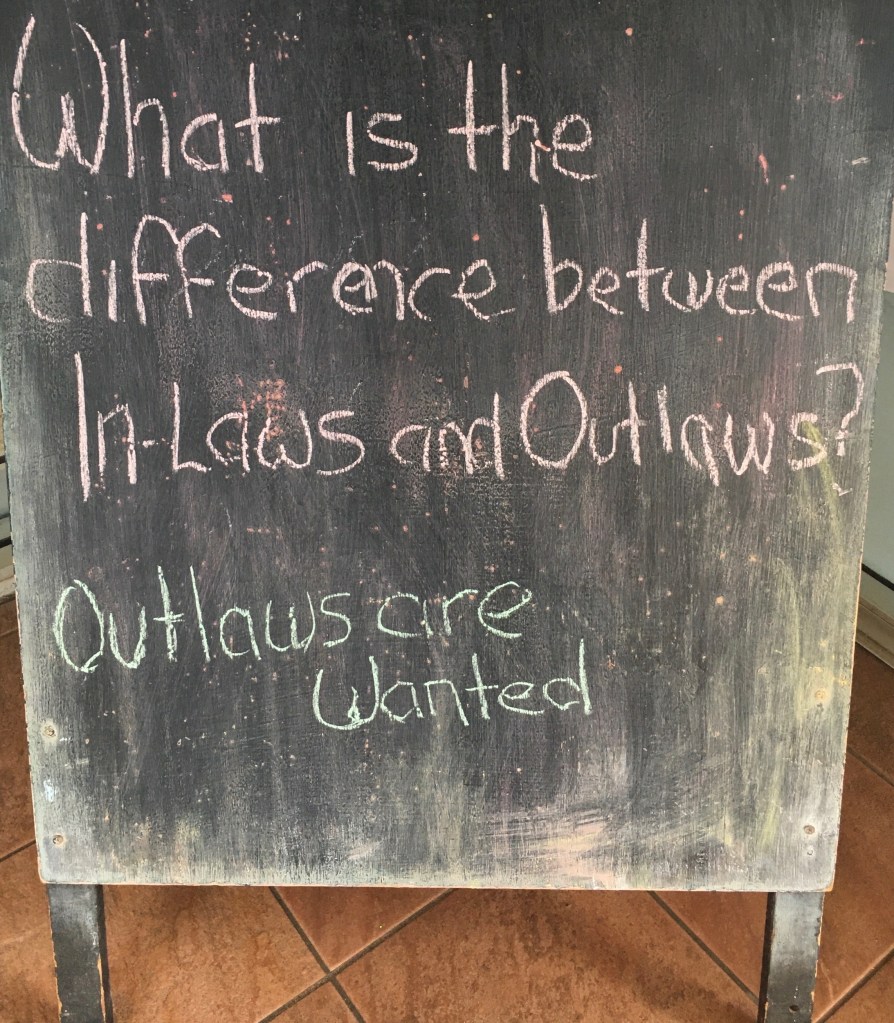 What is the
difference between
In-Laws and Outlaws?
Outlaws are
Wanted